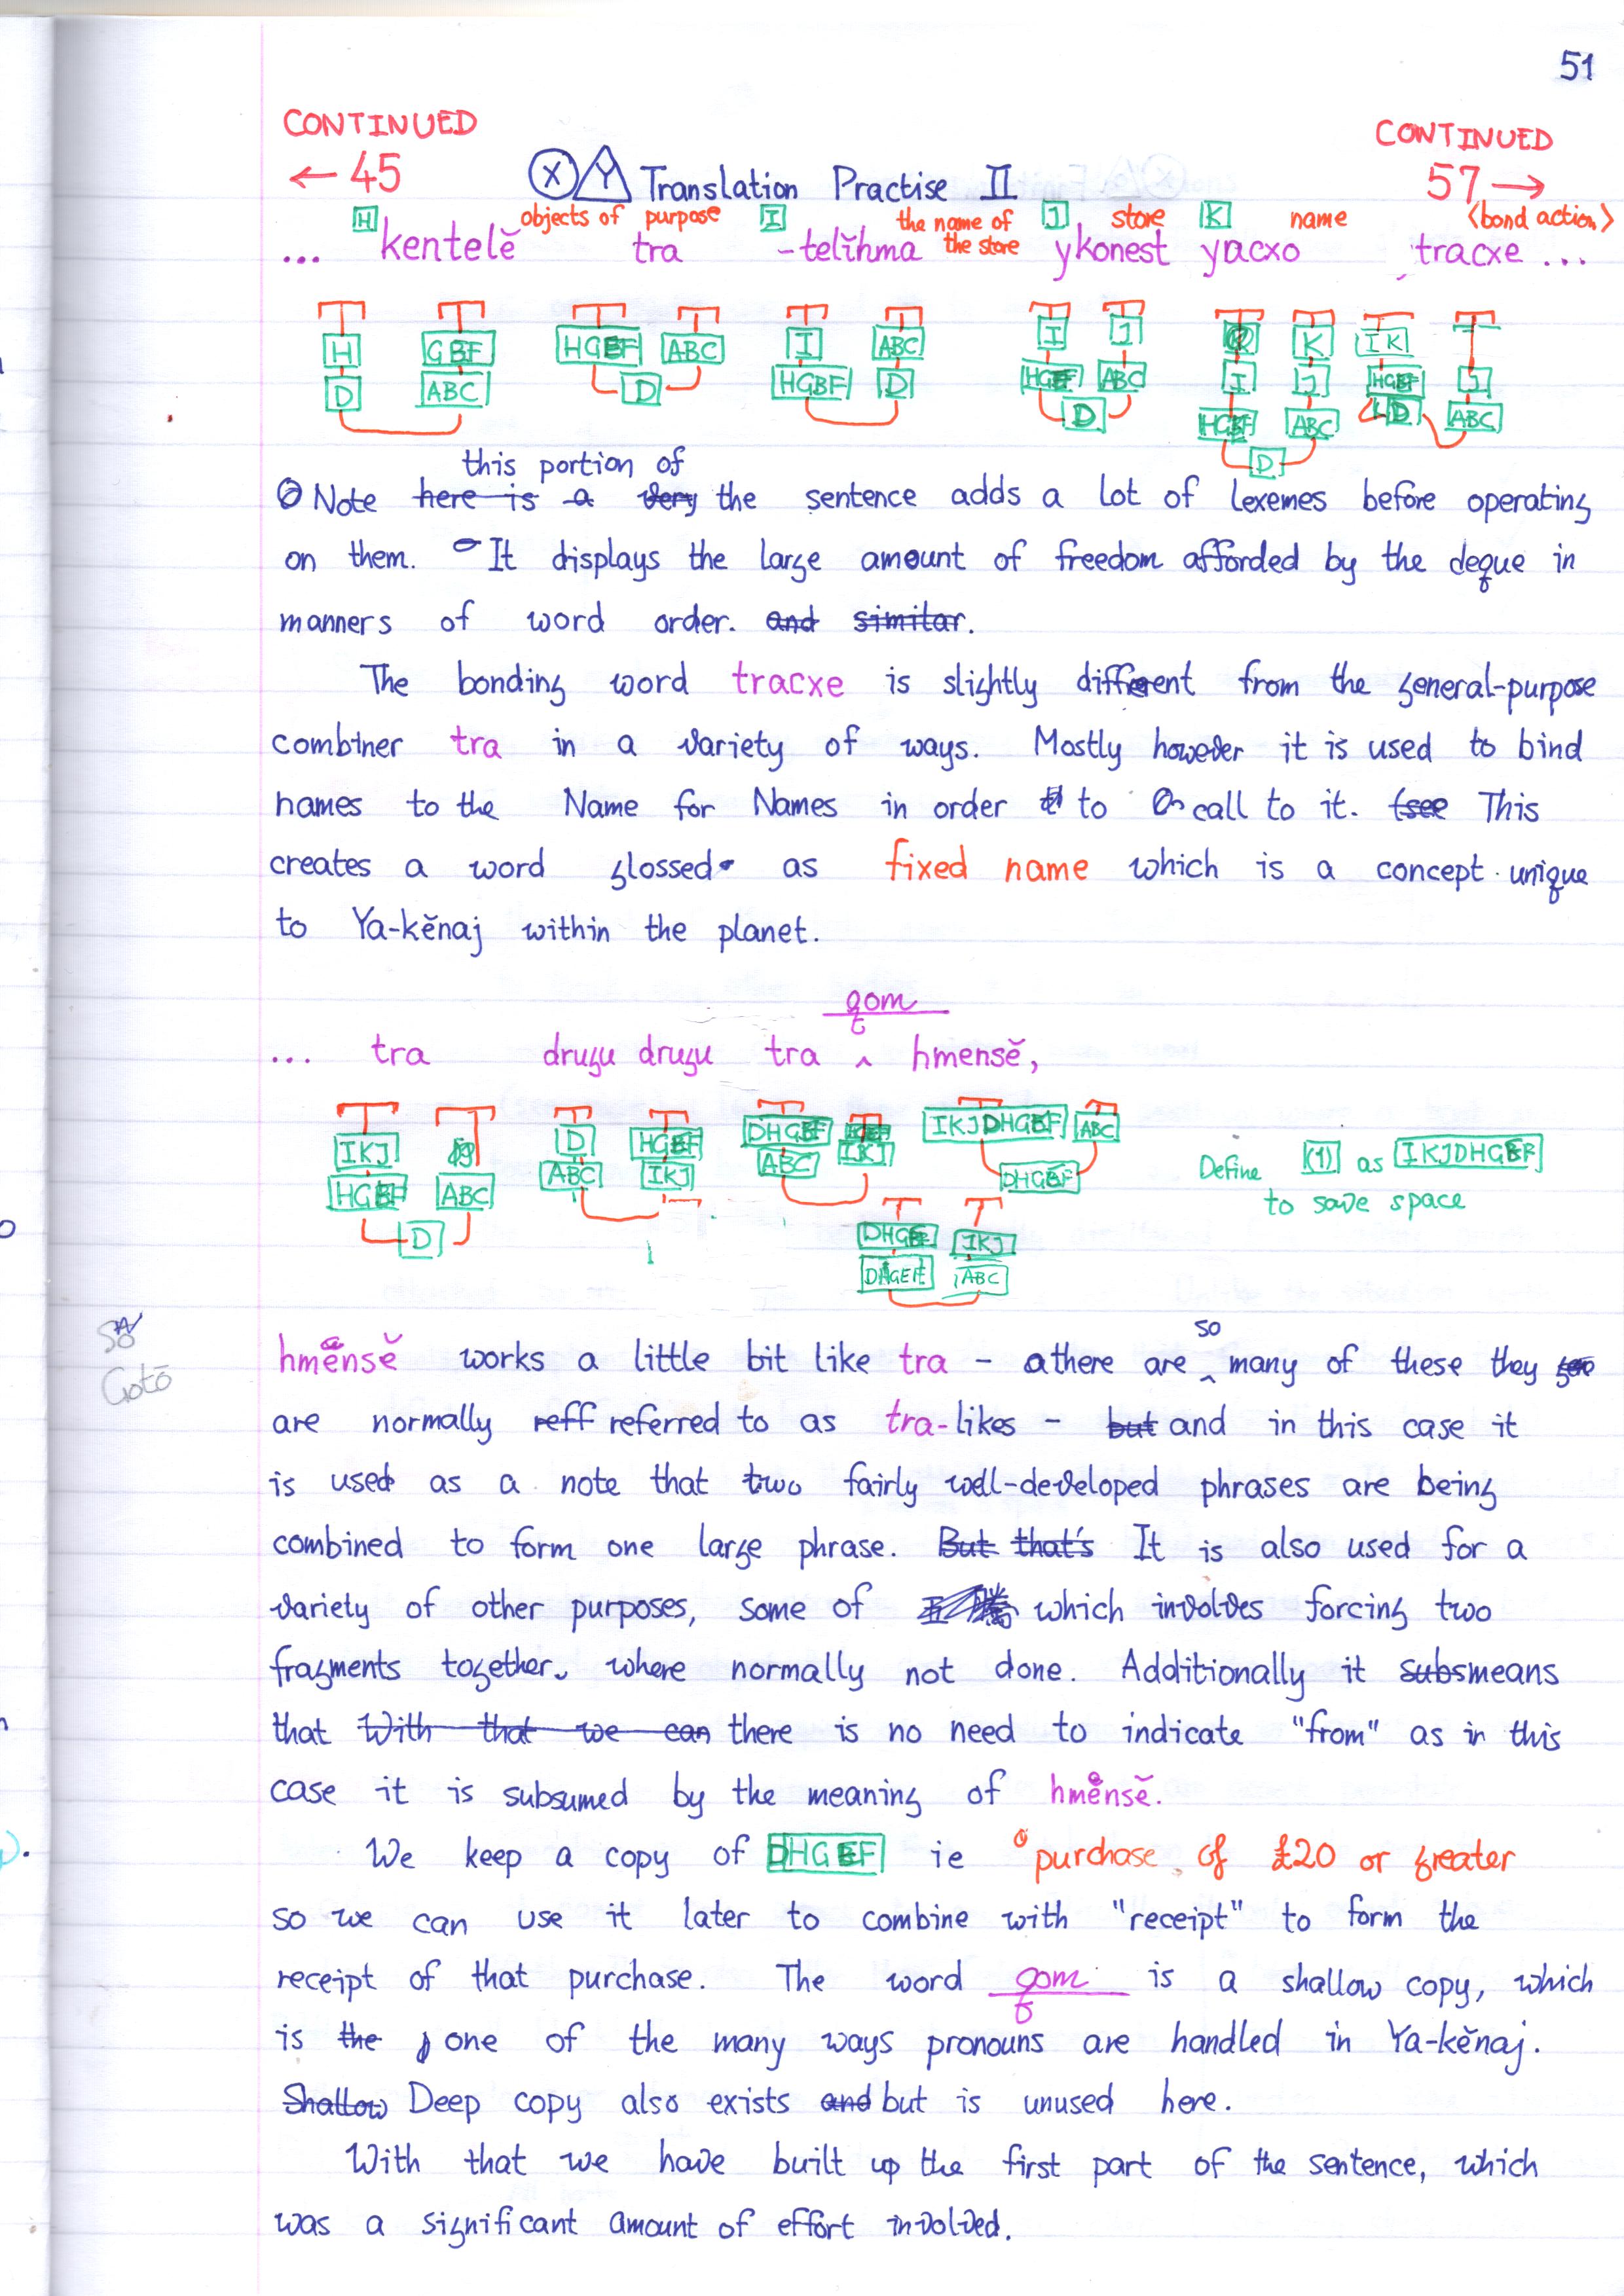 51
CONTINUED
← 45
CONTINUED
57 →
XY Translation Practise II
H objects of purpose I the name of the store J store K name <bond action>
... kentelĕ tra -telĭhma ykonest yacxo tracxe ...
H GBF HGBF ABC I ABC I J K IK
D ABC D HGBF D HGBF ABC I J HGBF J
D HGBF ABC D ABC
D
this portion of
Note here is a very the sentence adds a lot of lexemes before operating
on them. It displays the large amount of freedom afforded by the deque in
manners of word order. and similar.
The bonding word tracxe is slightly different from the general-purpose
combiner tra in a variety of ways. Mostly however it is used to bind
names to the Name for Names in order to call to it. (see This
creates a word glossed as fixed name which is a concept unique
to Ya-kĕnaj within the planet.
qom
... tra drugu drugu tra ^ hmensĕ,
IKJ D HGBF DHGBF IKJ IKJDHGBF ABC
HGBF ABC ABC IKJ ABC DHGBF
D DHGBF IKJ
ABC
Define (1) as IKJDHGBF
to save space
Gotō
so
hmensĕ works a little bit like tra - there are ^ many of these they
are normally reff referred to as tra-likes - but and in this case it
is used as a note that two fairly well-developed phrases are being
combined to form one large phrase. But that's It is also used for a
variety of other purposes, some of which involves forcing two
fragments together where normally not done. Additionally it subsmeans
that With that we can there is no need to indicate "from" as in this
case it is subsumed by the meaning of hmensĕ.
We keep a copy of DHGBF ie purchase of £20 or greater
so we can use it later to combine with "receipt" to form the
receipt of that purchase. The word qom is a shallow copy, which
is the one of the many ways pronouns are handled in Ya-kĕnaj.
Shallow Deep copy also exists and but is unused here.
With that we have built up the first part of the sentence, which
was a significant amount of effort involved.